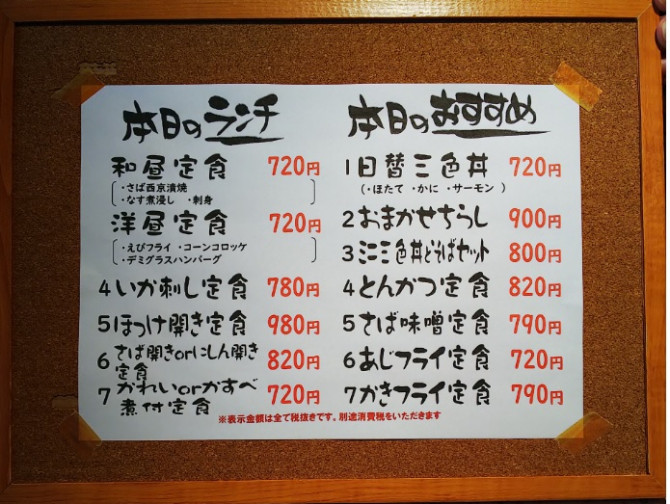 本日のランチ
和昼定食 720円
・さば西京漬焼
・なす煮浸し ・刺身
洋昼定食 720円
・えびフライ ・コーンコロッケ
・デミグラスハンバーグ
4 いか刺し定食 780円
5 ほっけ開き定食 980円
6 さば開きorにしん開き
定食 820円
7 かれいorかすべ
煮付定食 720円
本日のおすすめ
1 日替三色丼 720円
(・ほたて ・かに ・サーモン )
2 おまかせちらし 900円
3 ミニ三色丼とそばセット 800円
4 とんかつ定食 820円
5 さば味噌定食 790円
6 あじフライ定食 720円
7 かきフライ定食 790円
※表示金額は全て税抜きです。別途消費税をいただきます